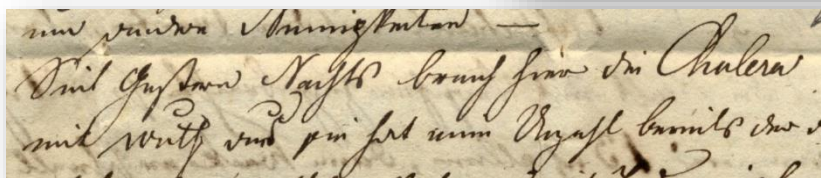 und andere Kleinigkeiten —
Seit Gestern Nachts brach hier die Cholera
mit Wuth aus sie hat eine Unzahl bereits der